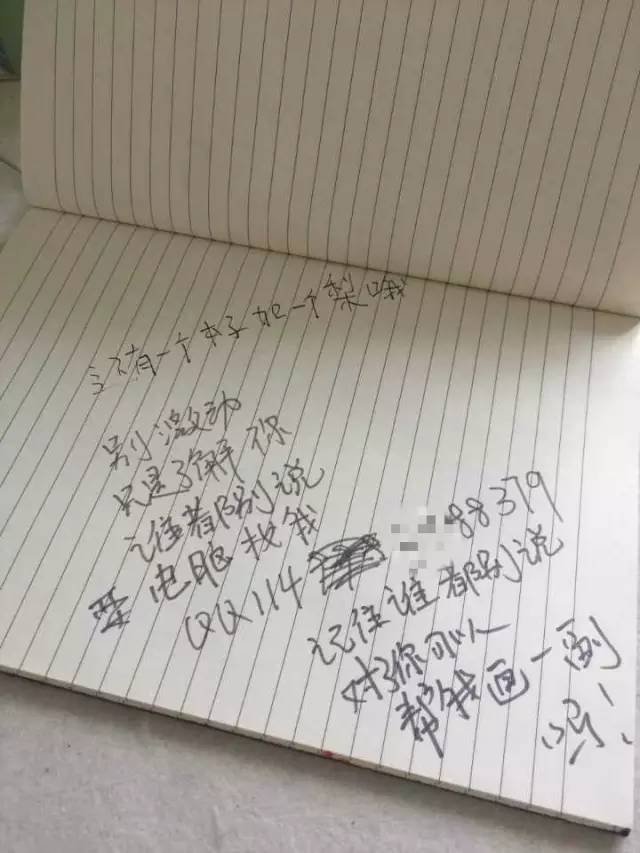 还有一个本子和一个梨哦
别激动
只是了解你
谁都别说
电脑找我
QQ114 88379
记住谁都别说
对了你可以
帮我画一副
吗！